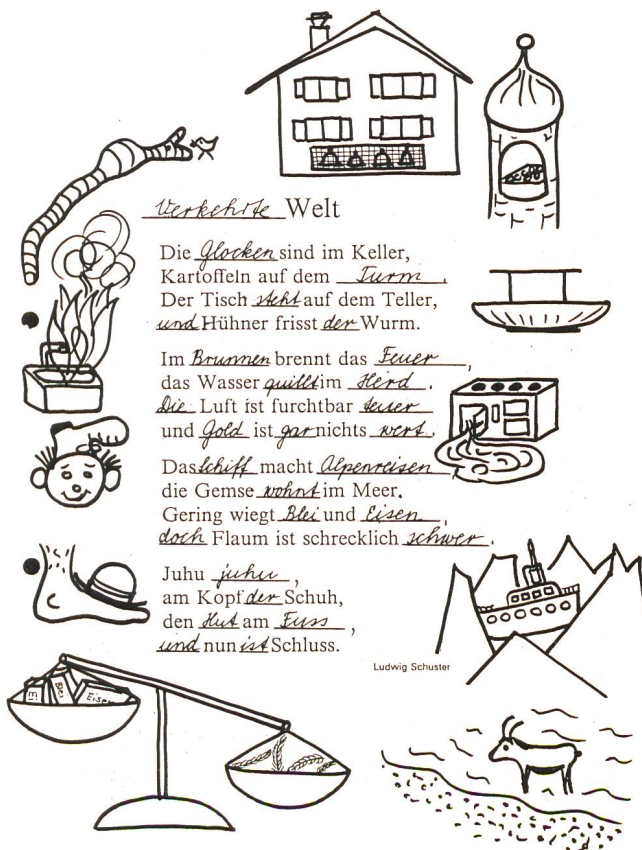 Verkehrte Welt
Die Glocken sind im Keller,
Kartoffeln auf dem Turm.
Der Tisch steht auf dem Teller,
und Hühner frisst der Wurm.
Im Brunnen brennt das Feuer,
das Wasser quillt im Herd.
Die Luft ist furchtbar teuer
und Gold ist gar nichts wert.
Das Schiff macht Alpenreisen,
die Gemse wohnt im Meer.
Gering wiegt Blei und Eisen,
doch Flaum ist schrecklich schwer.
Juhu juhu,
am Kopf der Schuh,
den Hut am Fuss,
und nun ist Schluss.
Ludwig Schuster
Blei
Eisen